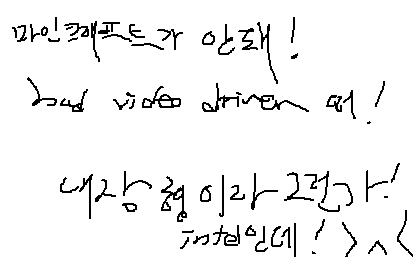 마인크래프트가 안돼!
bad video driver 떠!
내장형이라 그런가!
intel인데! >^<